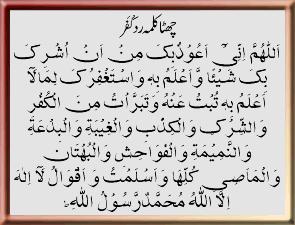 چھٹا کلمہ ردِ کُفر
اَللّٰهُمَّ اِنِّیْ اَعُوْذُ بِکَ مِنْ اَنْ اُشْرِکَ
بِکَ شَیْئًا وَّاَعْلَمُ بِهٖ وَاسْتَغْفِرُکَ لِمَالَا
اَعْلَمُ بِهٖ تُبْتُ عَنْهُ وَتَبَرَّاْتُ مِنَ الْکُفْرِ
وَالشِّرْکِ وَالْکِذْبِ وَالْغِیْبَةِ وَالْبِدْعَةِ
وَالنَّمِیْمَةِ وَالْفَوَاحِشِ وَالْبُهْتَانِ
وَالْمَاصِیْ کُلِّهَا وَاَسْلَمْتُ وَاَقُوْلُ لَآ اِلٰهَ
اِلَّا اللّٰهُ مُحَمَّدٌ رَّسُوْلُ اللّٰهِ ؕ